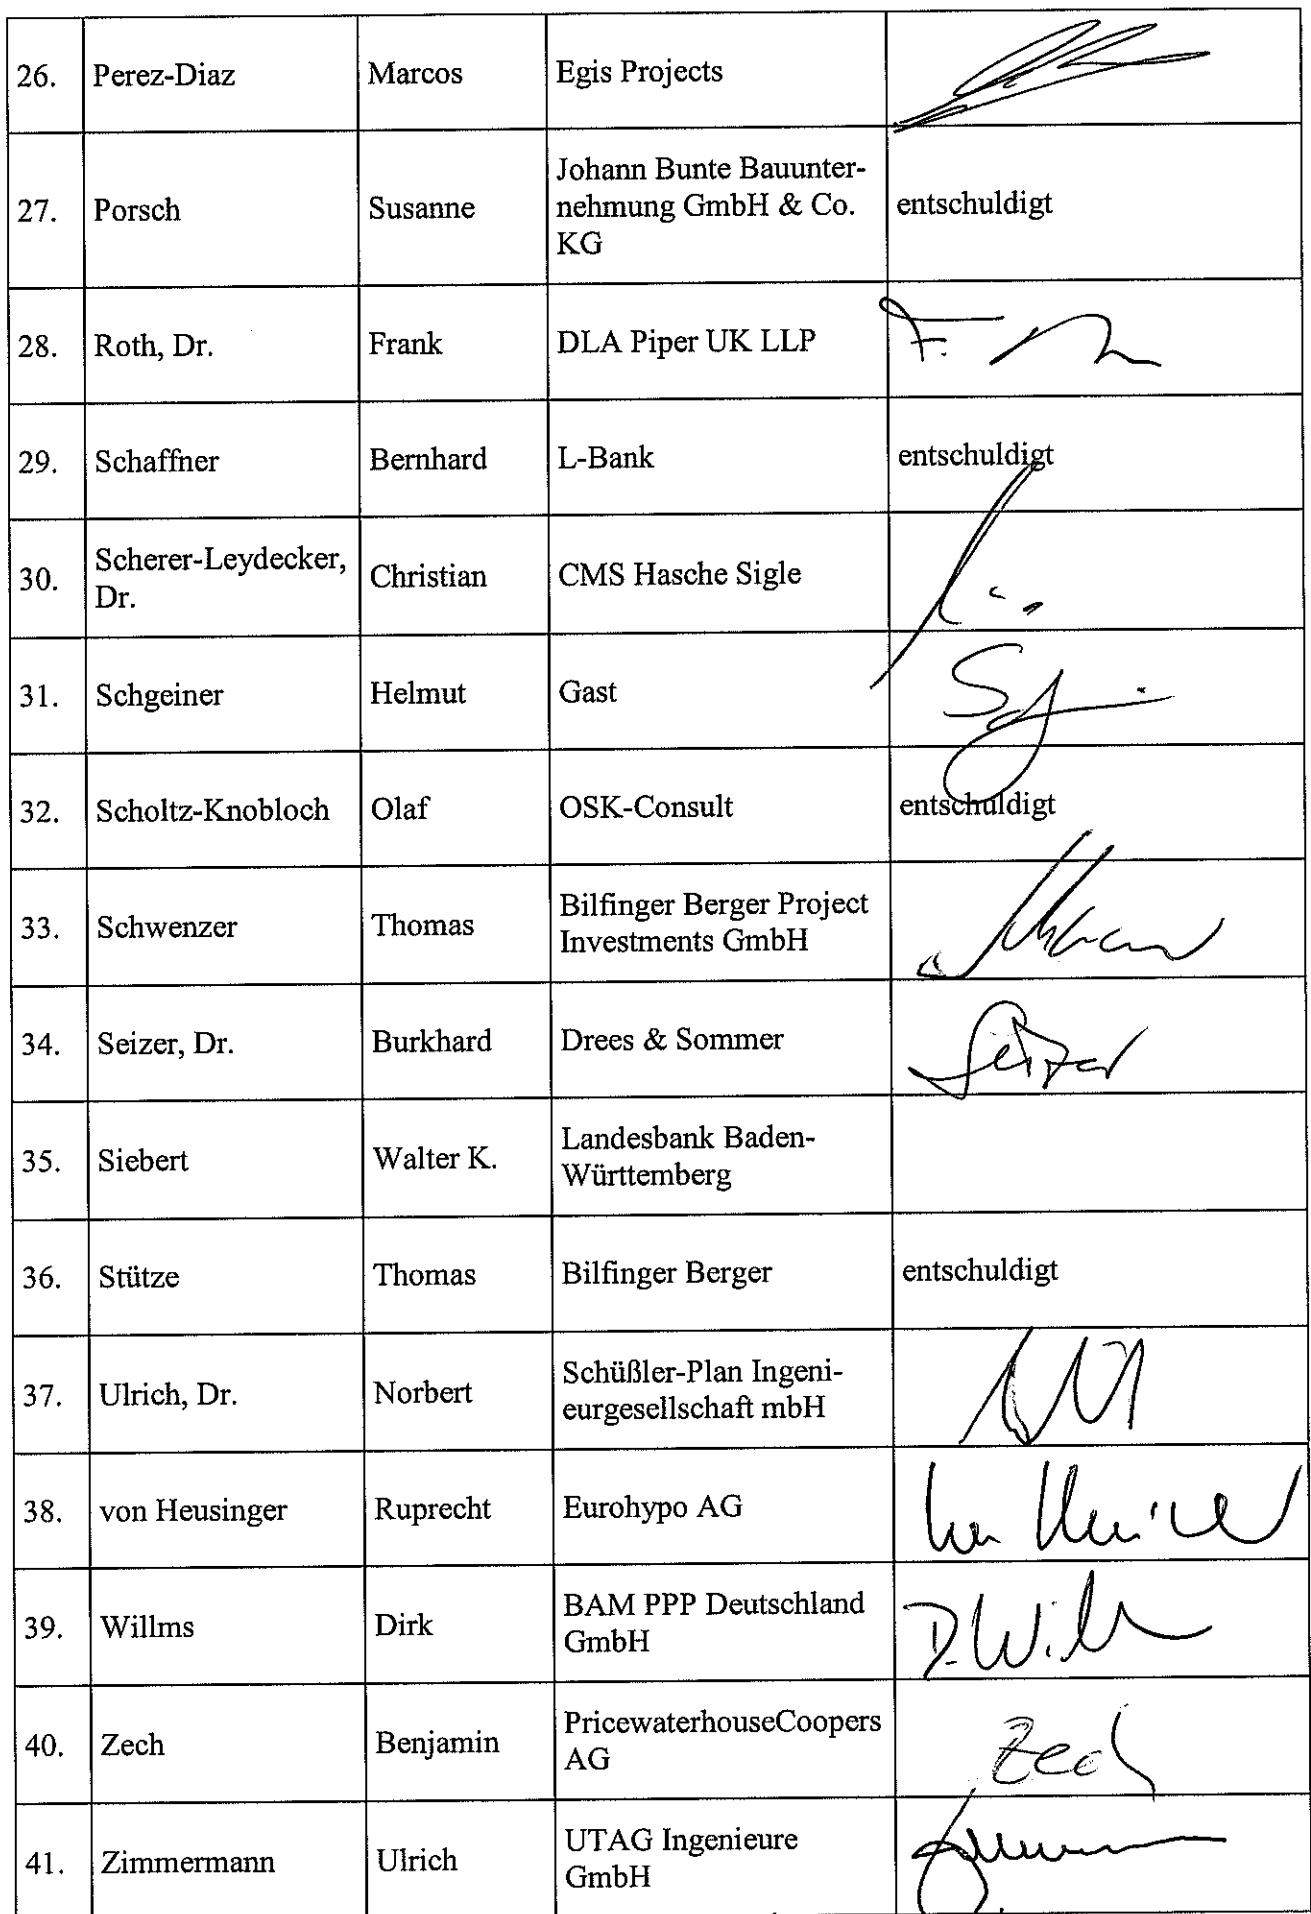 26. Perez-Diaz Marcos Egis Projects
27. Porsch Susanne Johann Bunte Bauunter-
nehmung GmbH & Co.
KG entschuldigt
28. Roth, Dr. Frank DLA Piper UK LLP F.
29. Schaffner Bernhard L-Bank entschuldigt
30. Scherer-Leydecker,
Dr. Christian CMS Hasche Sigle
31. Schgeiner Helmut Gast
32. Scholtz-Knobloch Olaf OSK-Consult entschuldigt
33. Schwenzer Thomas Bilfinger Berger Project
Investments GmbH
34. Seizer, Dr. Burkhard Drees & Sommer Seizer
35. Siebert Walter K. Landesbank Baden-
Württemberg
36. Stütze Thomas Bilfinger Berger entschuldigt
37. Ulrich, Dr. Norbert Schüßler-Plan Ingeni-
eurgesellschaft mbH
38. von Heusinger Ruprecht Eurohypo AG
39. Willms Dirk BAM PPP Deutschland
GmbH
40. Zech Benjamin PricewaterhouseCoopers
AG Zech
41. Zimmermann Ulrich UTAG Ingenieure
GmbH